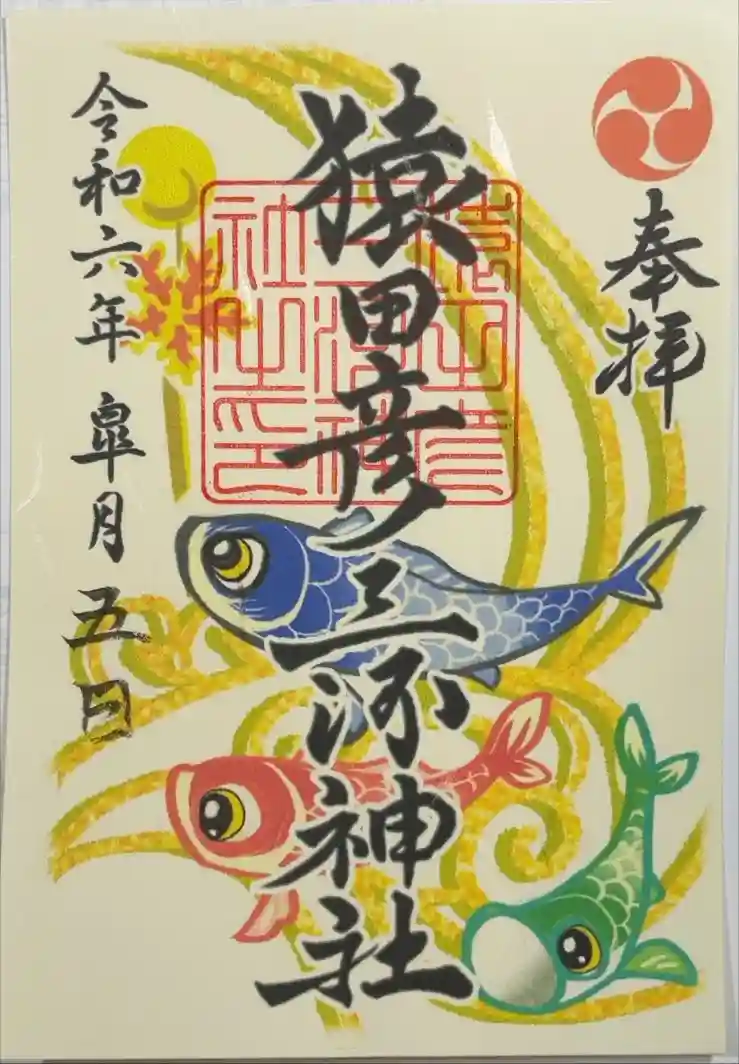 奉拝
猿田彦三河神社
令和六年皐月五日
猿田彦三河神社之印